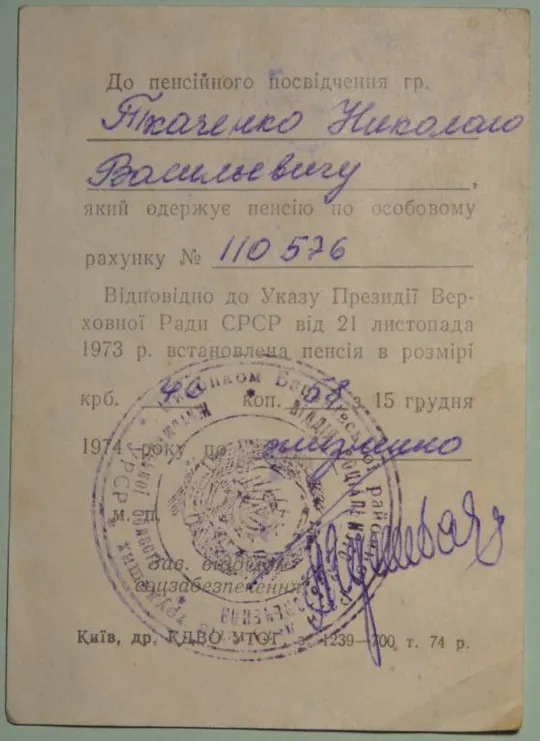 До пенсійного посвідчення гр.
Ткаченко Николаю
Васильевичу,
який одержує пенсію по особовому
рахунку № 110576
Відповідно до Указу Президії Вер-
ховної Ради СРСР від 21 листопада
1973 р. встановлена пенсія в розмірі
крб. 40 коп. 68 з 15 грудня
1974 року по
м. п.
Зав. відділом
соцзабезпечення
Київ, др. КДВО УТОГ, з. 1239—700 т. 74 р.